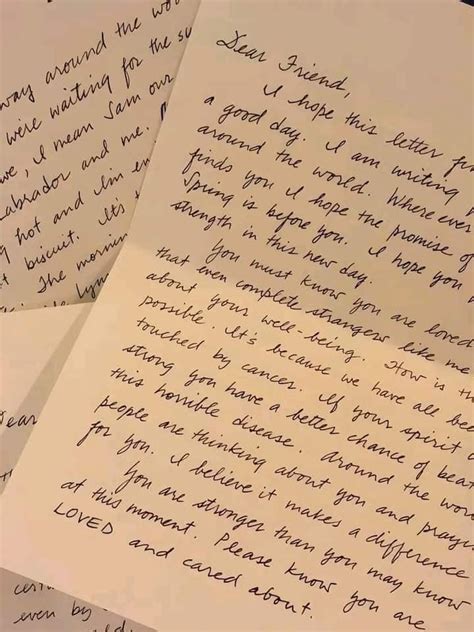 way around the wo
were waiting for the su
we, I mean Sam our
abrador and me.
g hot and I'm en
t biscuit. It's
The mornin
Dear
cert
even by
Dear Friend,
I hope this letter fin
a good day. I am writing
around the world. Where ever
finds you I hope the promise of
Spring is before you. I hope you
strength in this new day.
You must know you are loved
that even complete strangers like me
about your well-being. How is th
possible. It's because we have all bee
touched by cancer. If your spirit
strong you have a better chance of beat
this horrible disease. Around the wor
people are thinking about you and prayin
for you. I believe it makes a difference
You are stronger than you may know
at this moment. Please know you are
LOVED and cared about.